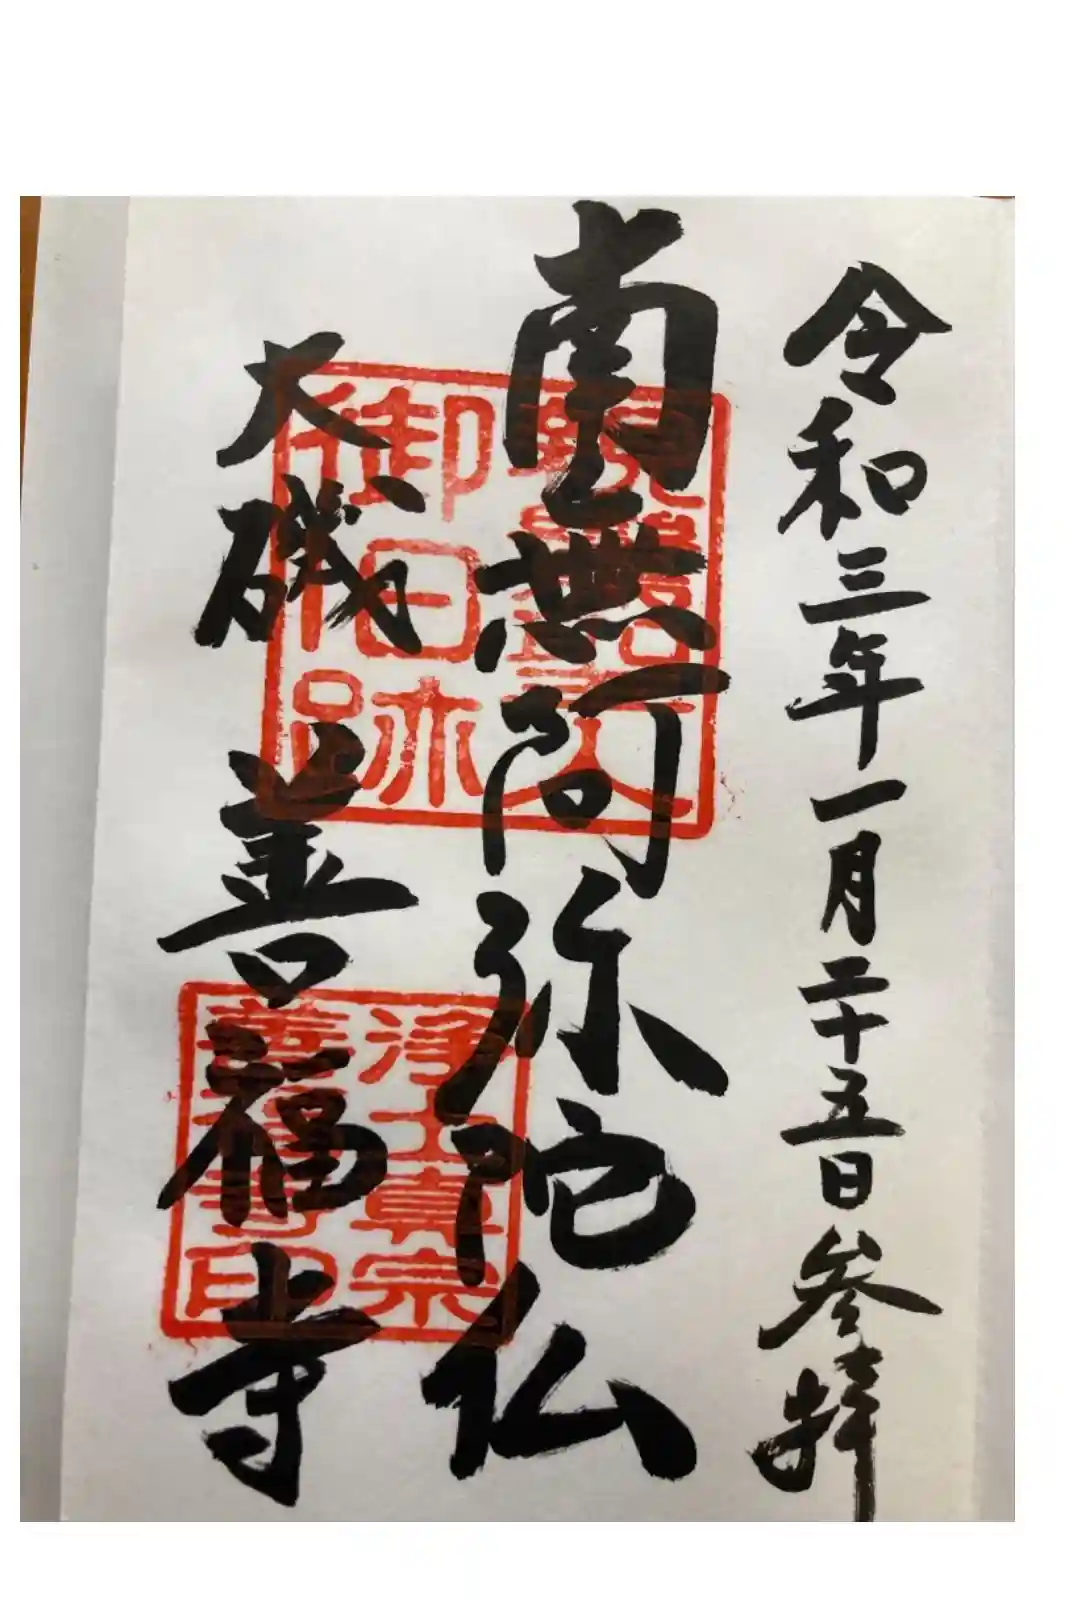 令和三年一月二十五日参拝
南無阿弥陀仏
大磯 善福寺
親鸞聖人
御旧跡
浄土真宗
善福寺印